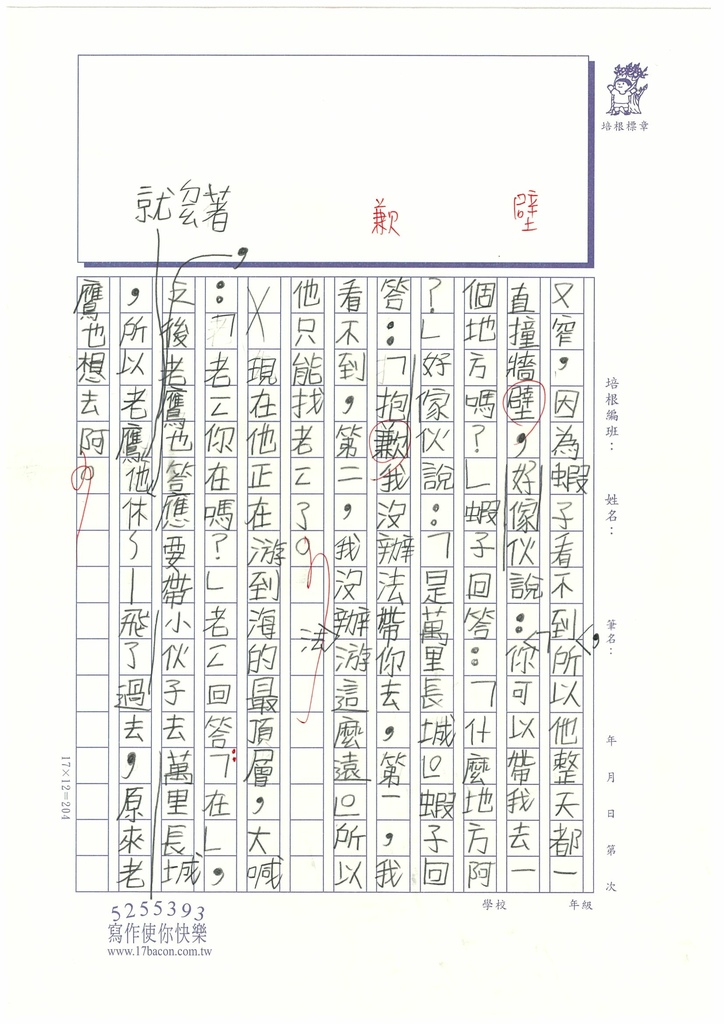 又窄，因為蝦子看不到所以他整天都一
直撞牆壁，好傢伙說：「你可以帶我去一
個地方嗎？」蝦子回答：「什麼地方阿
？」好傢伙說：「是萬里長城。」蝦子回
答：「抱歉我沒辦法帶你去，第一，我
看不到，第二，我沒辦法游這麼遠。」所以
他只能找老工了。
現在他正在游到海的最頂層，大喊
：「老工你在嗎？」老工回答：「在」，
之後老鷹也答應要帶小伙子去萬里長城
，所以老鷹他休～—飛了過去，原來老
鷹也想去阿。
就
著
歉
壁
，
培根標章
培根編班：
姓名：
筆名：
年 月 日 第 次
學校 年級
17×12=204
5255393
寫作使你快樂
www.17bacon.com.tw